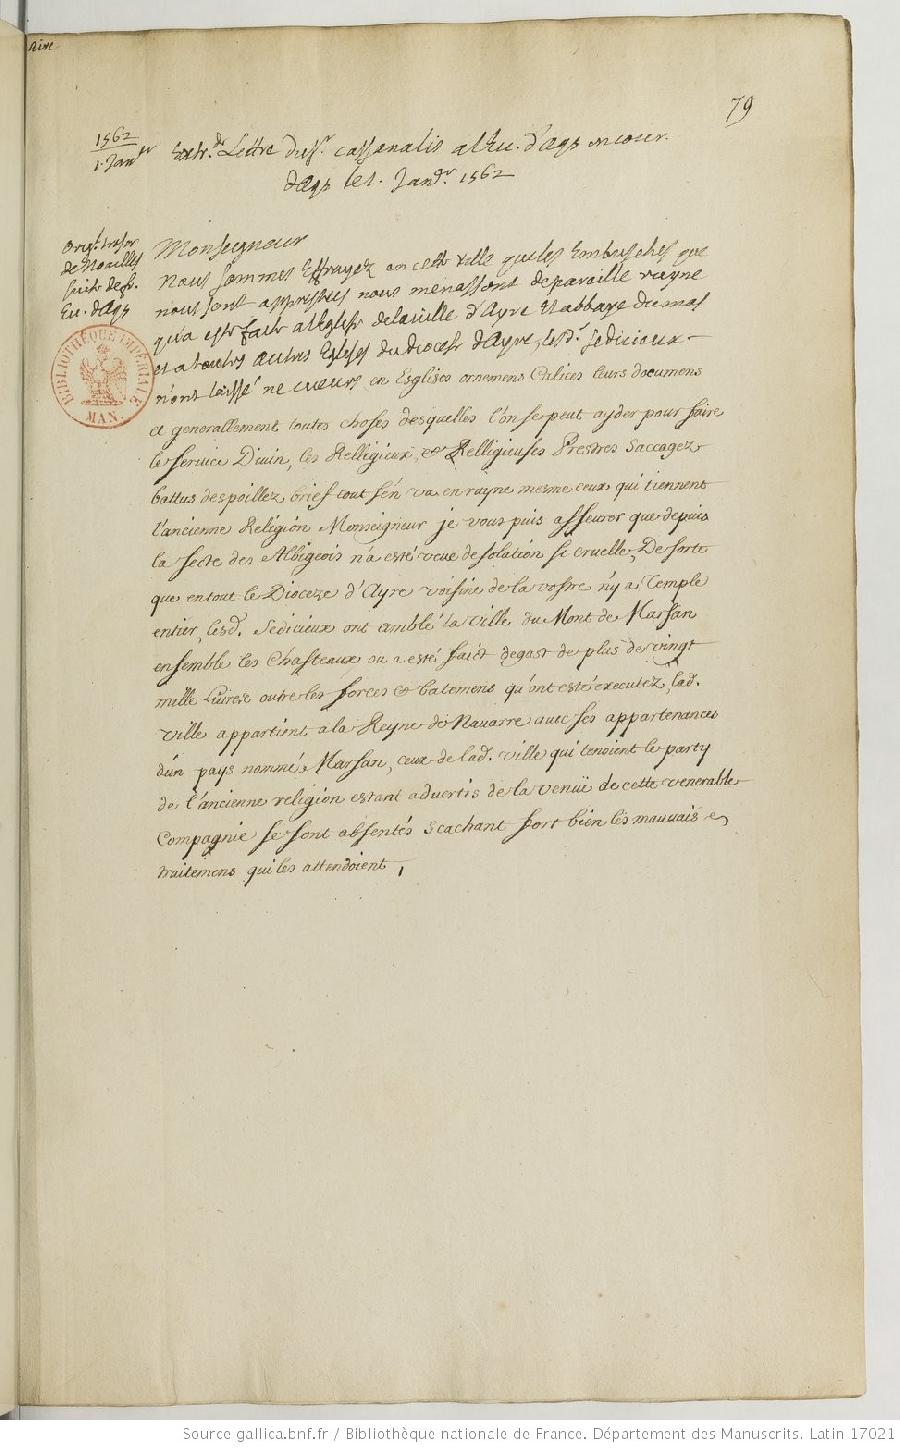 Aire
79
1562
1. Janvr
Extr. de Lettre du Sr. cassenalis a l'Eu. d'Aqs en cour.
d'aqs le 1. Janvr. 1562
Orig.l tresor
de Noailles
suite de fr.
Eu. d'Aqs
Monseigneur
Nous sommes Effrayez en cette ville que les Embusches que
nous sont apprestées nous menassent de paraille ruyne
qu'a este faite a l'Eglise de la ville d'Ayre Et abbaye du mas
et a toutes autres Eglises du diocese d'Ayre, lesd. sedicieux
n'ont laissé ne cueurs en Esglises ornemens Calices leurs documens
et generallement toutes choses desquelles l'on se peut ayder pour faire
le service Divin, les Relligieux, et Relligieuses Prestres saccagez
battus despoillez brief tout s'en va en ruyne mesme ceux qui tiennent
l'ancienne Religion Monseigneur je vous puis asseurer que depuis
la secte des Albigeois n'a esté veue desolation si cruelle, De sorte
que en tout le Dioceze d'Ayre voisine de la vostre n'y a Temple
entier, lesd. sedicieux ont amblé la ville du Mont de Marsan
ensemble les Chasteaux ou a esté faict degast de plus de vingt
mille Livres outre les forces et batemens qu'ont esté executez, lad.
ville appartient a la Reyne de Navarre avec ses appartenances
d'un pays nommé Marsan, ceux de lad. ville qui tenoient le party
de l'ancienne religion estant advertis de la venuë de cette venerable
Compagnie se sont absentés scachant fort bien les mauvais
traitemens qui les attendoient,
BIBLIOTHÈQUE IMPÉRIALE
MAN.
Source gallica.bnf.fr / Bibliothèque nationale de France. Département des Manuscrits. Latin 17021